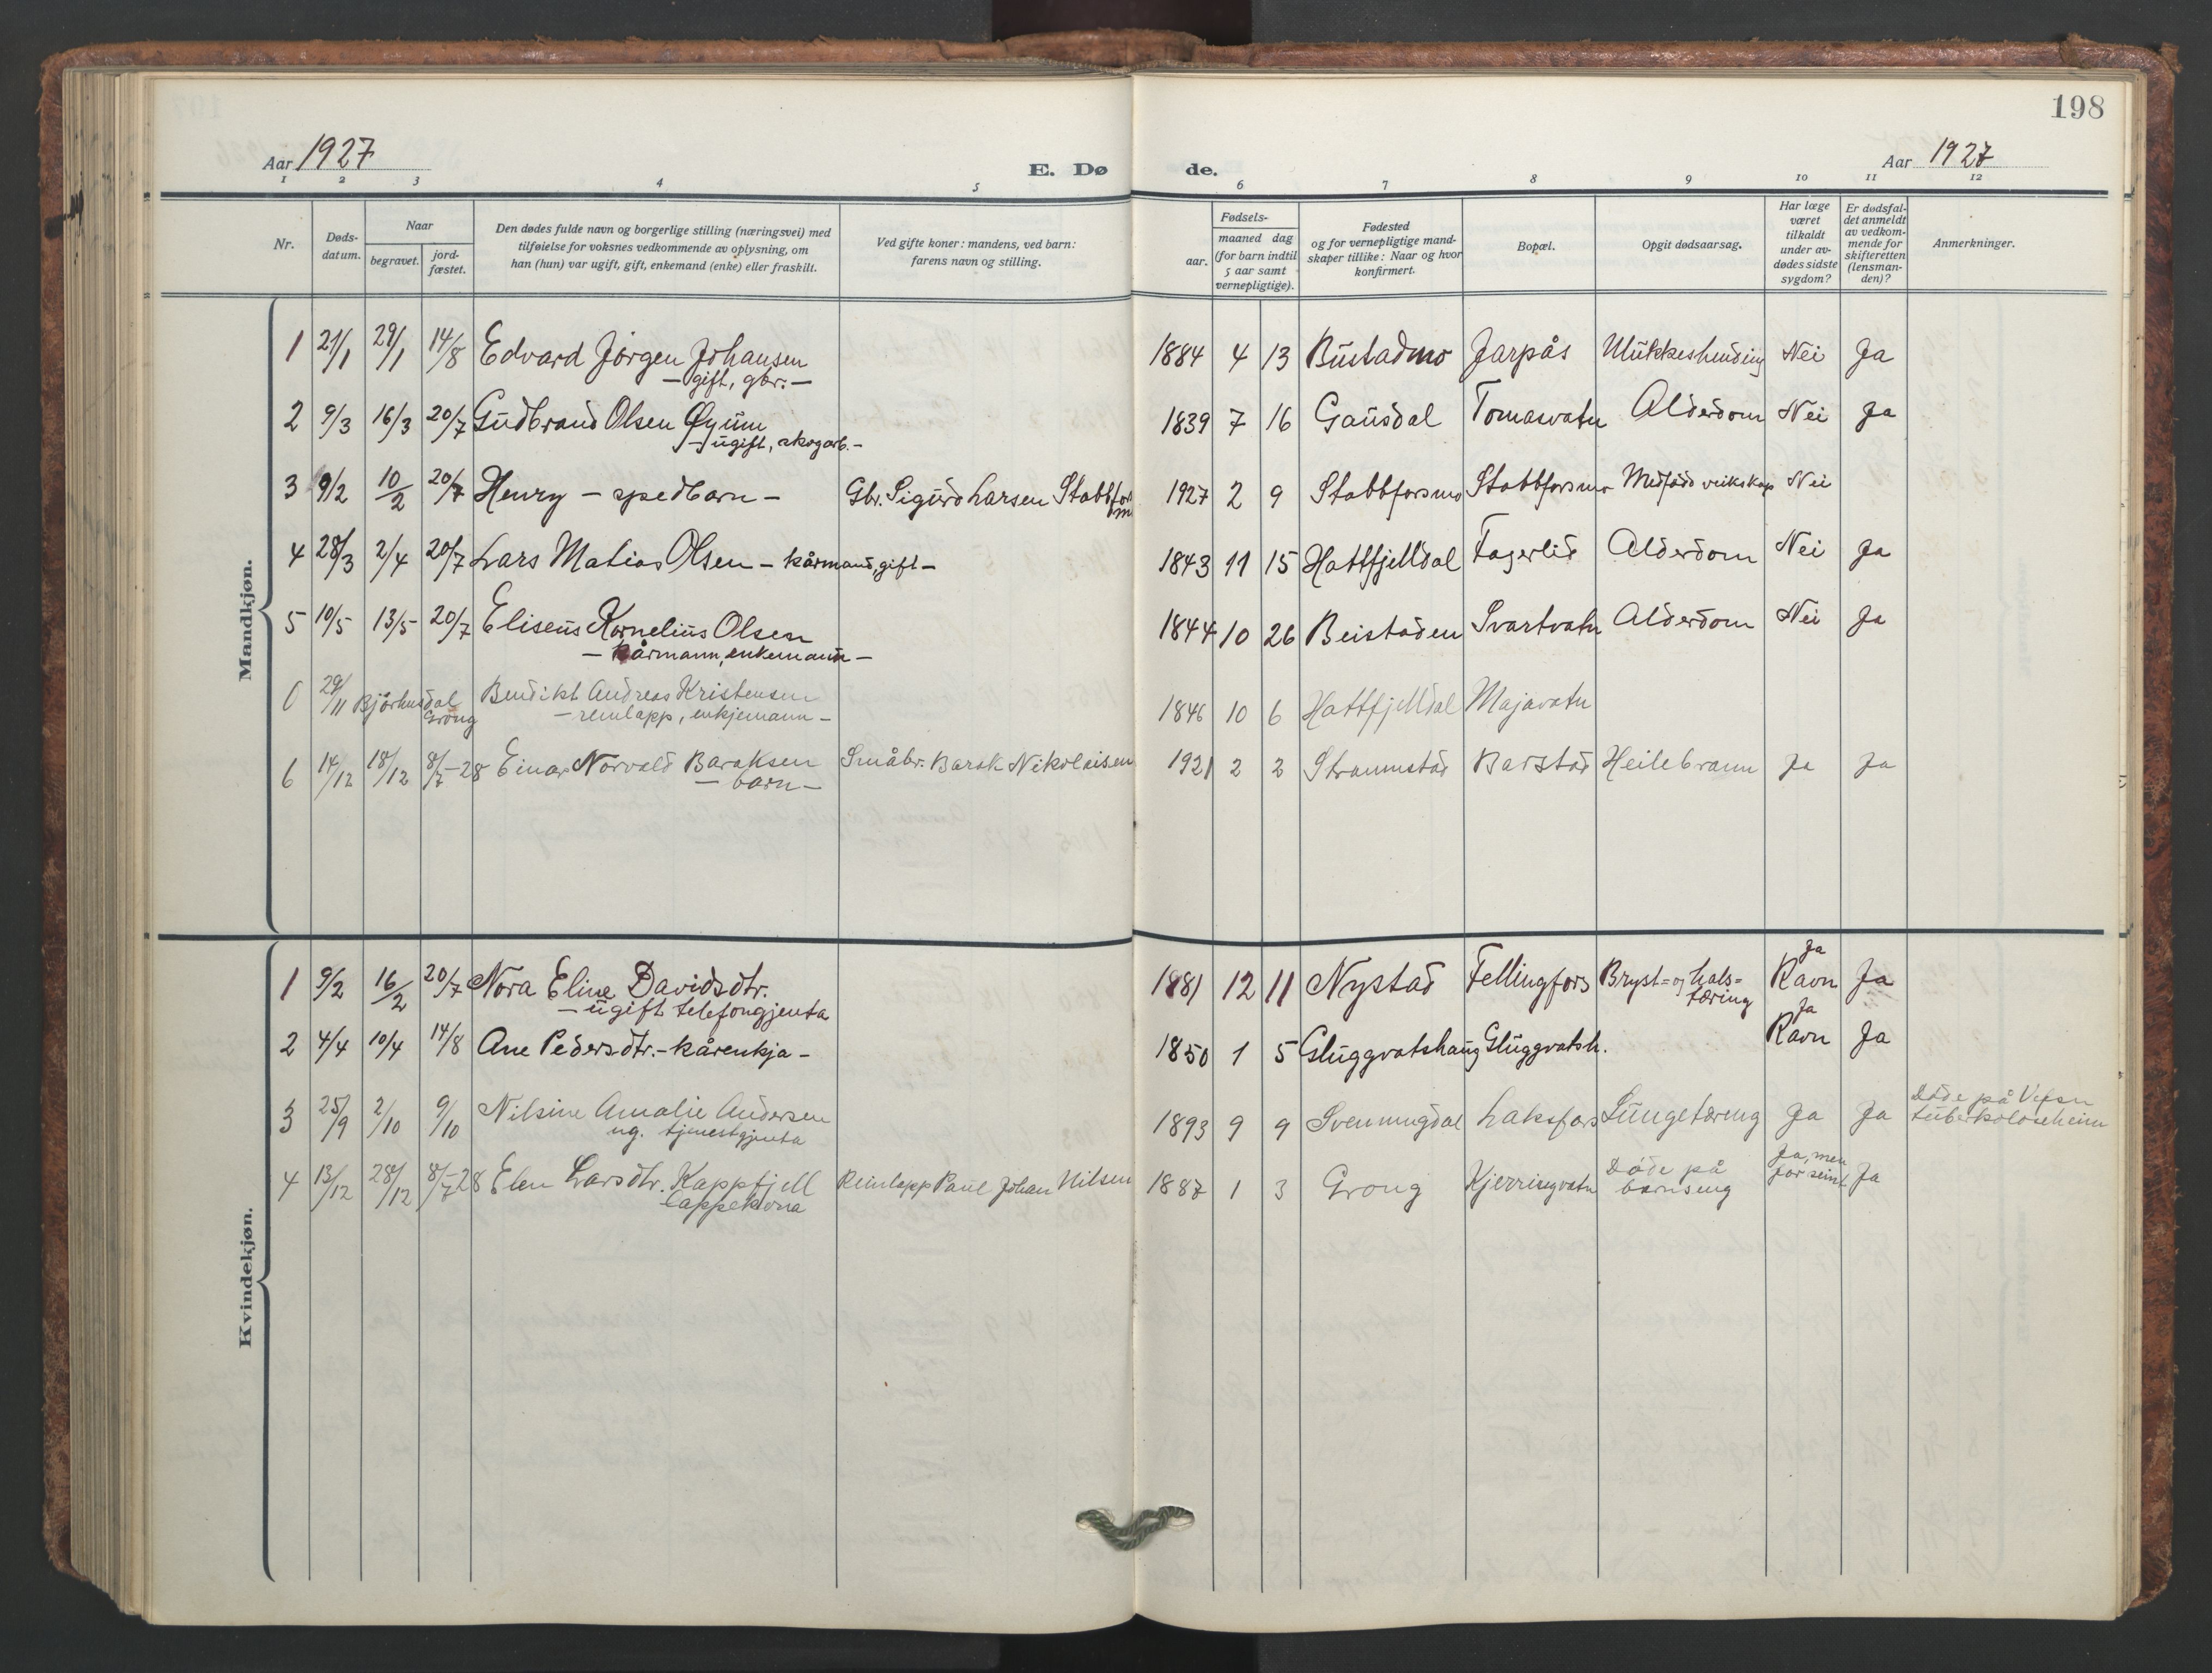 198
Aar 1927
E. Dø de.
Aar 1927
1 2 3 4 5 6 7 8 9 10 11 12
Nr.
Døds-datum.
Naar
begravet.
jord-fæstet.
Den dødes fulde navn og borgerlige stilling (næringsvei) med
tilføielse for voksnes vedkommende av oplysning, om
han (hun) var ugift, gift, enkemand (enke) eller fraskilt.
Ved gifte koner: mandens, ved barn:
farens navn og stilling.
Fødsels-
aar.
maaned dag
(for barn indtil
5 aar samt
vernepligtige).
Fødested
og for vernepligtige mand-
skaper tillike: Naar og hvor
konfirmert.
Bopæl.
Opgit dødsaarsag.
Har læge
været
tilkaldt
under av-
dødes sidste
sygdom?
Er dødsfal-
det anmeldt
av vedkom-
mende for
skifteretten
(lensman-
den)?
Anmerkninger.
Mandkjøn.
1 21/1 29/1 14/8 Edvard Jørgen Johansen 1884 4 13 Bustadmo Jarpås Nei Ja
— gift, gbr. —
2 9/3 16/3 20/7 Gudbrand Olsen Øyum 1839 7 16 Gausdal Tomasvatn Alderdom Nei Ja
— ugift, skogarb. —
3 9/2 10/2 20/7 Henry — spedbarn — Gbr. Sigurd Larsen Stabbfors 1927 2 9 Stabbforsmo Stabbforsmo Medfødd veikskap Nei
m
4 28/3 2/4 20/7 Lars Matias Olsen — kårmand, gift — 1843 11 15 Hattfjelldal Fagerlid Alderdom Nei Ja
5 10/5 13/5 20/7 Eliseus Kornelius Olsen 1844 10 26 Beistaden Svartvatn Alderdom Nei Ja
— kårmann, enkemann —
0 29/11 Bjørhusdal Bendikt Andreas Kristensen 1846 10 6 Hattfjelldal Majavatn
Grong — reinlapp, enkjemann —
6 14/12 18/12 8/7-28 Einar Norvald Baraksen Småbr. Barak Nikolaisen 1921 2 2 Straumstad Barstad Heilebrann Ja Ja
— barn —
Kvindekjøn.
1 9/2 16/2 20/7 Nora Eline Davidsdtr. 1881 12 11 Nystad Fellingfors Bryst= og hals= Ja Ravn Ja
— ugift telefongjenta tæring
2 4/4 10/4 14/8 Ane Pedersdtr. — kårenkja — 1850 1 5 Gluggvatshaug Gluggvatsh. Ja Ravn Ja
3 25/9 2/10 9/10 Nilsine Amalie Andersen 1893 9 9 Svenningdal Laksfors Lungetæring Ja Ja Døde på Vefsn
ug. tjenestgjenta tuberkoloseheim
4 13/12 28/12 8/7-28 Elen Larsdtr. Kappfjell Reinlapp Paul Johan Nilsen 1887 1 3 Grong Kjerringvatn Døde på Ja, men Ja
lappekona barnseng for seint